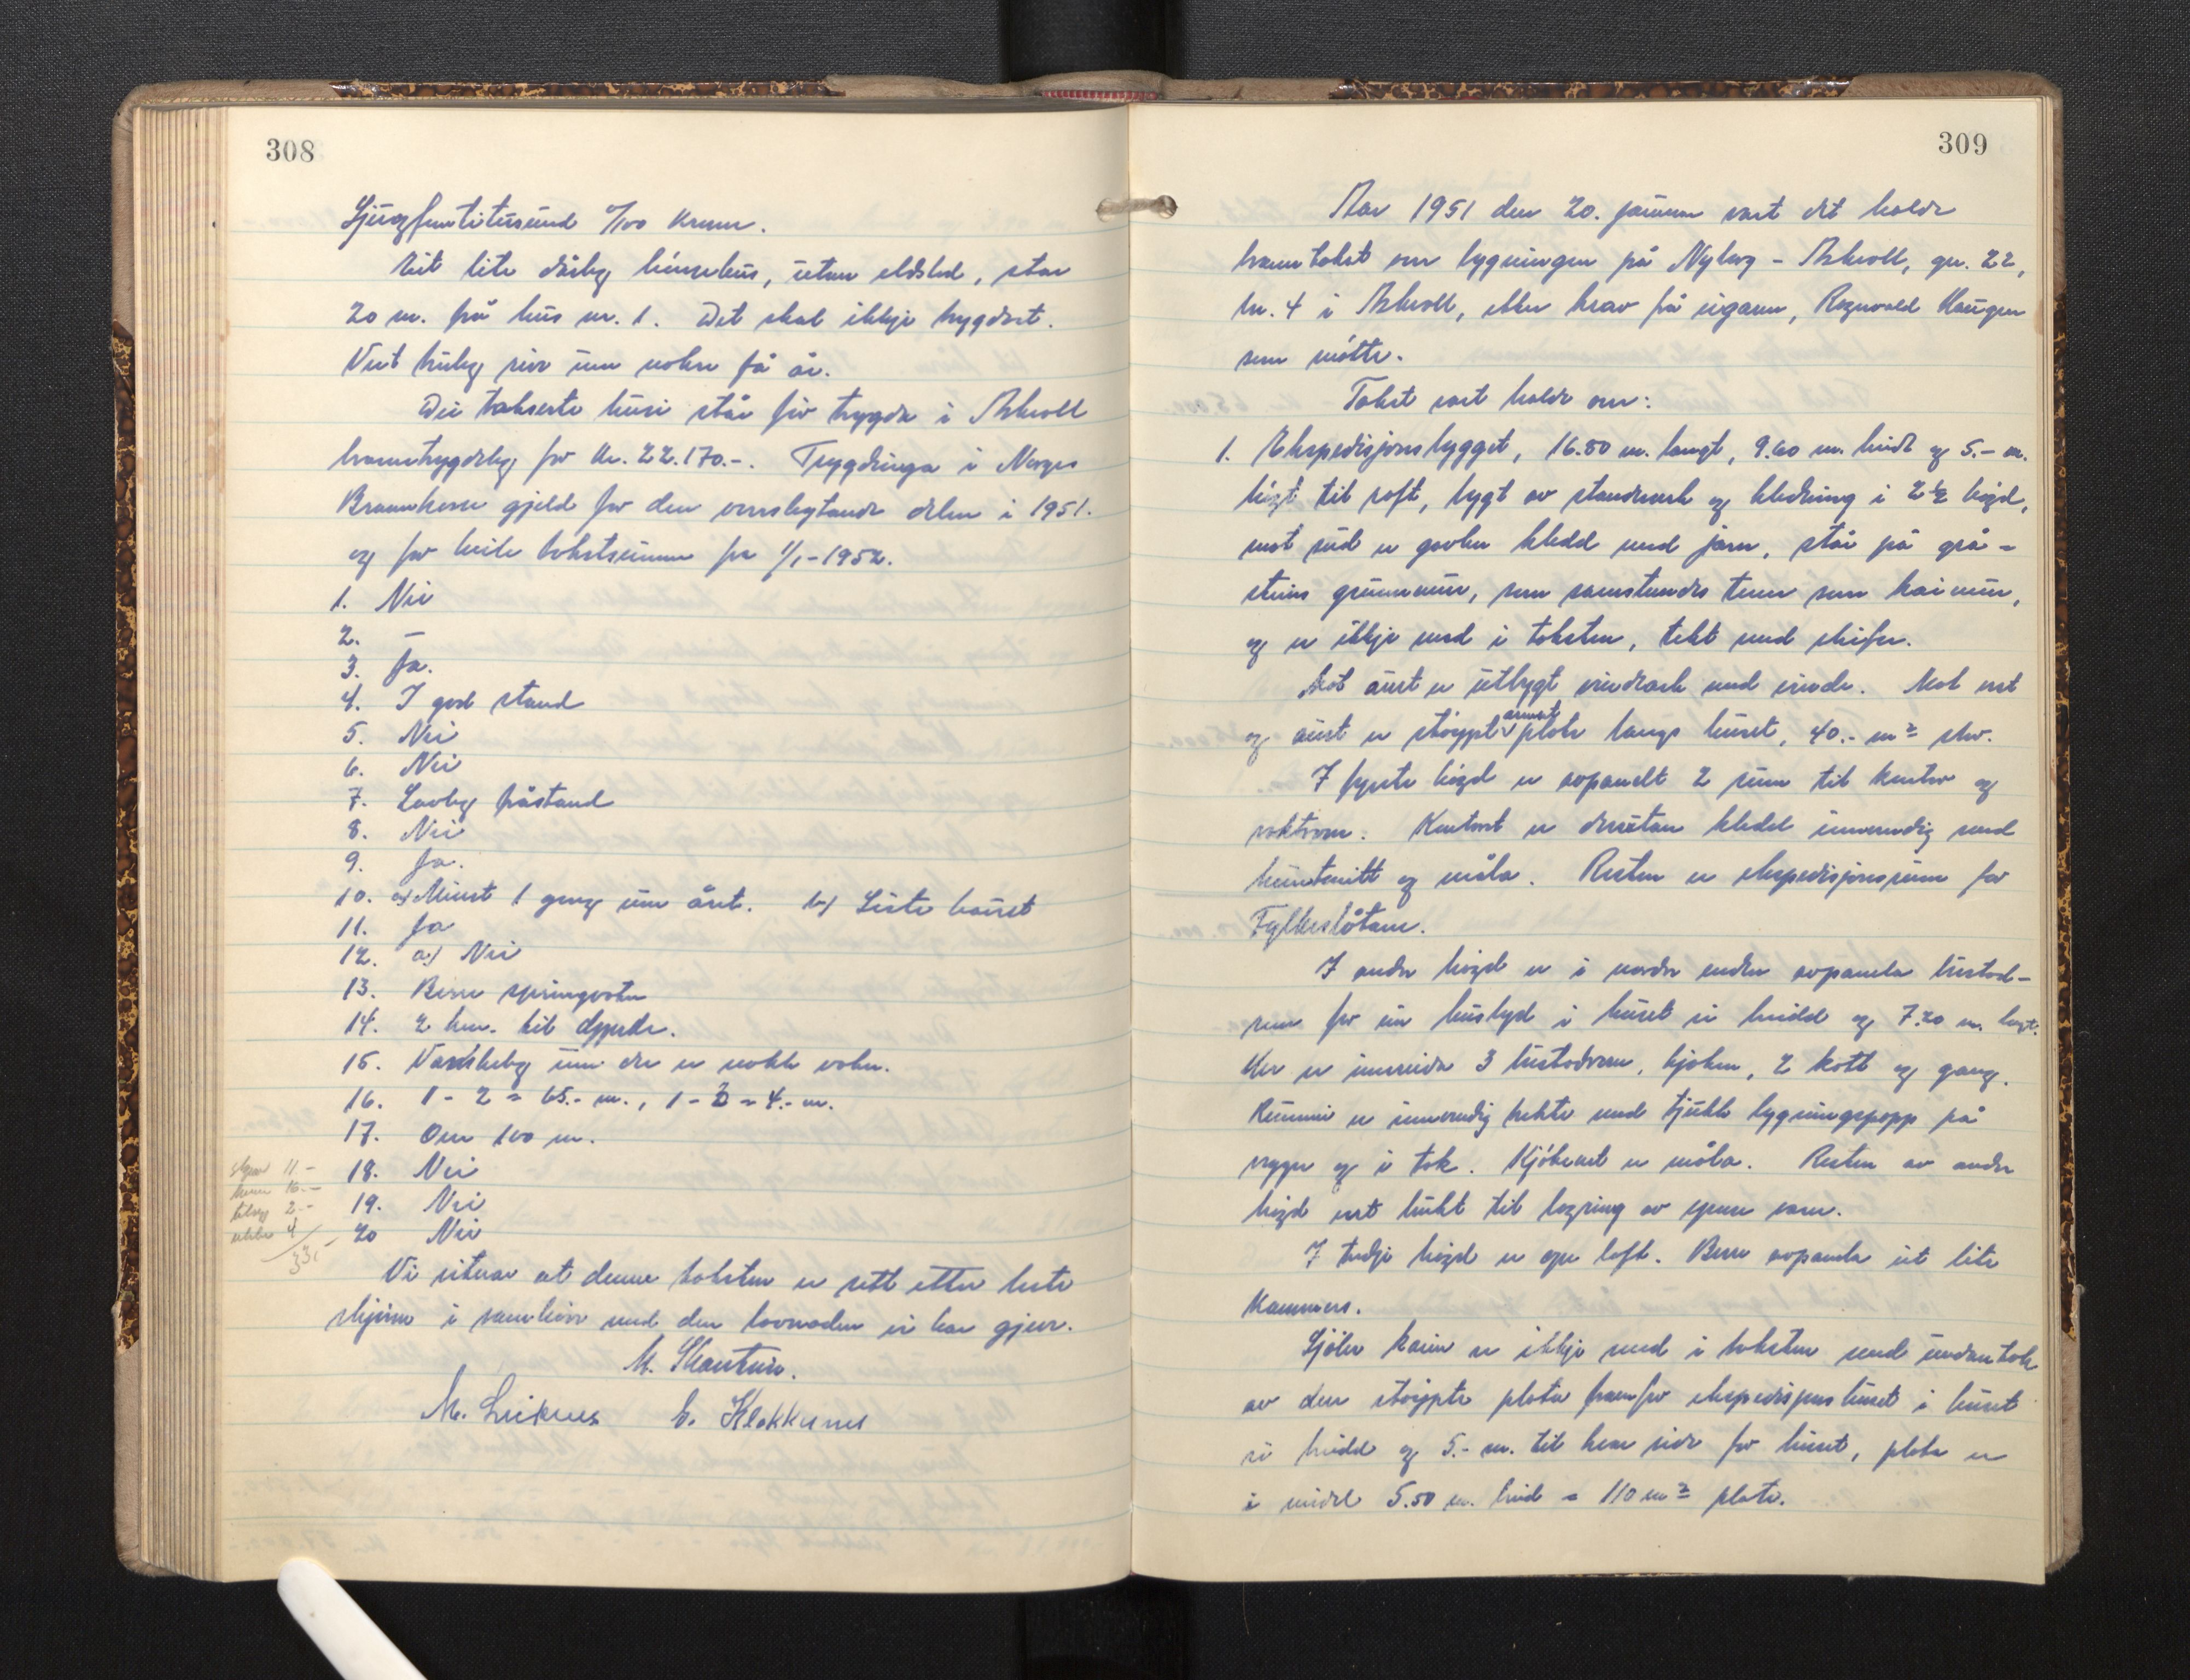 308
Sjugfemtitusund 0/100 kroner.
Eit lite dårleg hønsehus, utan eldsted, står
20 m. frå hus nr. 1. Det skal ikkje trygdast.
Vert truleg rive um nokre få år.
Dei takserte husi står fyr trygda i Askvoll
branntrygdelag for kr. 22.170.-. Trygdinga i Norges
Brannkasse gjeld for den overskytande delen i 1951.
og for heile takstsummen frå 1/1-1952.
1. Nei
2. –
3. Ja.
4. I god stand
5. Nei
6. Nei
7. Lovleg tilstand
8. Nei
9. Ja.
10. a) Minst 1 gong um året. b) Siste haust
11. Ja
12. a) Nei
13. Berre springvatn
14. 2 km. til dppede.
15. Vanskeleg um der er nokk vatn.
16. 1 - 2 = 65.- m., 1 - 3 = 4.- m.
17. Over 100 m.
18. Nei
19. Nei
20 Nei
skyss 11.-
16.-
tillegg 2.-
4
33.-
Vi vitnar at denne taksten er sett etter beste
skjøn i samhøve med den lovnaden vi har gjeve.
M. Skarstein.
M. Leiknes E. Klokkernes
309
Aar 1951 den 20. januar vart det halde
branntakst over bygningen på Nyborg - Askvoll, gr. 22,
br. 4 i Askvoll, etter krav frå eigaren, Ragnvald Haugen
som møtte.
Takst vart halde over:
1. Ekspedisjonsbygget, 16.80 m. langt, 9.60 m. breidt og 5.- m.
høgt til roft, bygt av standverk og kledning i 2 1/2 høgd,
mot sud er gavlen kledd med jarn, står på grå-
steins grunnmur, som samstundes tener som kaimur,
og er ikkje med i taksten, tekt med skifer.
Mot aust er utbygt vindark med vinde. Mot vest
og aust er støypt armert plate langs huset, 40.- m² stor.
I fyrste høgd er avpanelt 2 rum til kontor og
vaktrom. Kontoret er dessutan kledd innvendig med
huntonitt og måla. Resten er ekspedisjonsrum for
Fylkesbåtane.
I andre høgd er i nordre enden avpanela bustad-
rum for ein huslyd i huset si breidd og 7.20 m. lengd.
Her er innreidd 3 bustadrom, kjøken, 2 kott og gang.
Rummi er innvendig trekte med tjukk bygningspapp på
vegger og i tak. Kjøkenet er måla. Resten av andre
høgd vert brukt til lagring av ymse varer.
I tridje høgd er ope loft. Berre avpanela eit lite
kammers.
Sjølve kaien er ikkje med i taksten med undantak
av den støypte plata framfor ekspedisjonshuset i huset
si breidd og 5.- m. til kvar side for huset, plata er
i midel 5.50 m. breid = 110 m² plate.